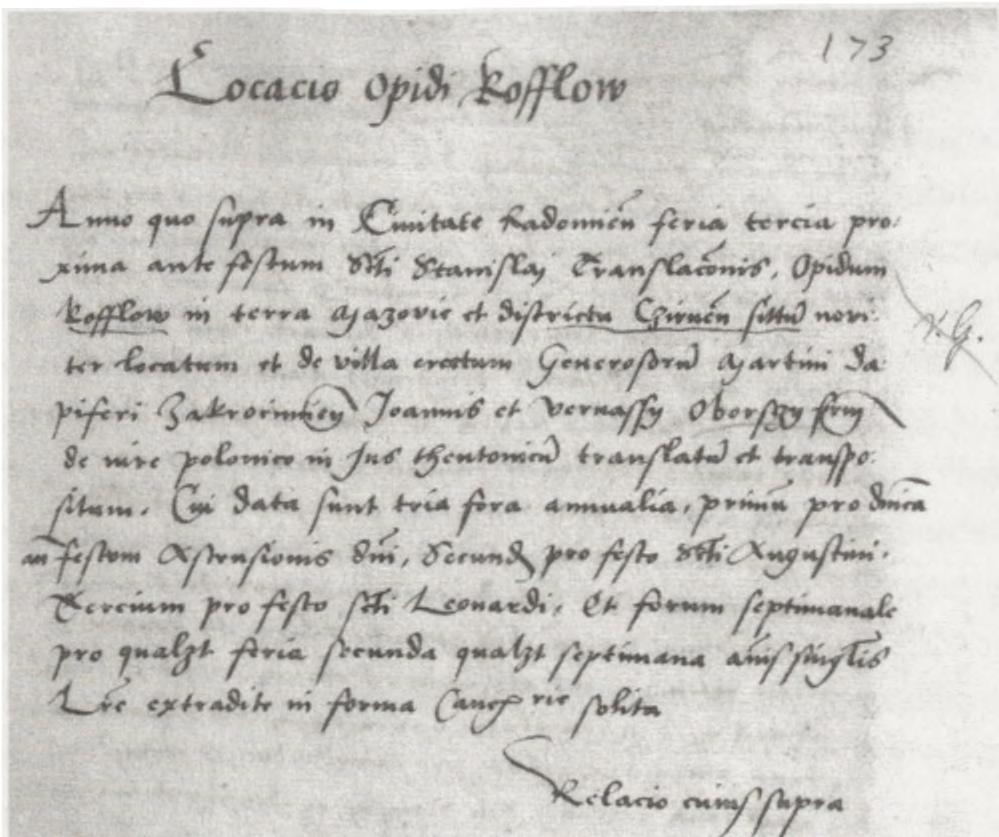 173
Locacio opidi Kofflow
Anno quo supra in Civitate Radomień feria tercia pro-
xima ante festum Scti Stanislaj Translacōnis, Opidum
Kofflow in terra Mazovie et districtu Czirneń sittū novi-
ter locatum et de villa erectum Generosorū Martini da-
piferi Zakroinmień Joannis et Vernassy Oborszy frm
de iure polonico in Jus theutonicū translatū et transpo-
situm. Cui data sunt tria fora annualia, primū pro dnica
an festum Ascensionis dni, Secundū pro festo Scti Augustini.
Tercium pro festo scti Leonardi, Et forum septimanale
pro qualzt feria secunda qualzt septimana anis singlis
Lre extradite in forma Canc rie solita
Relacio cuius supra